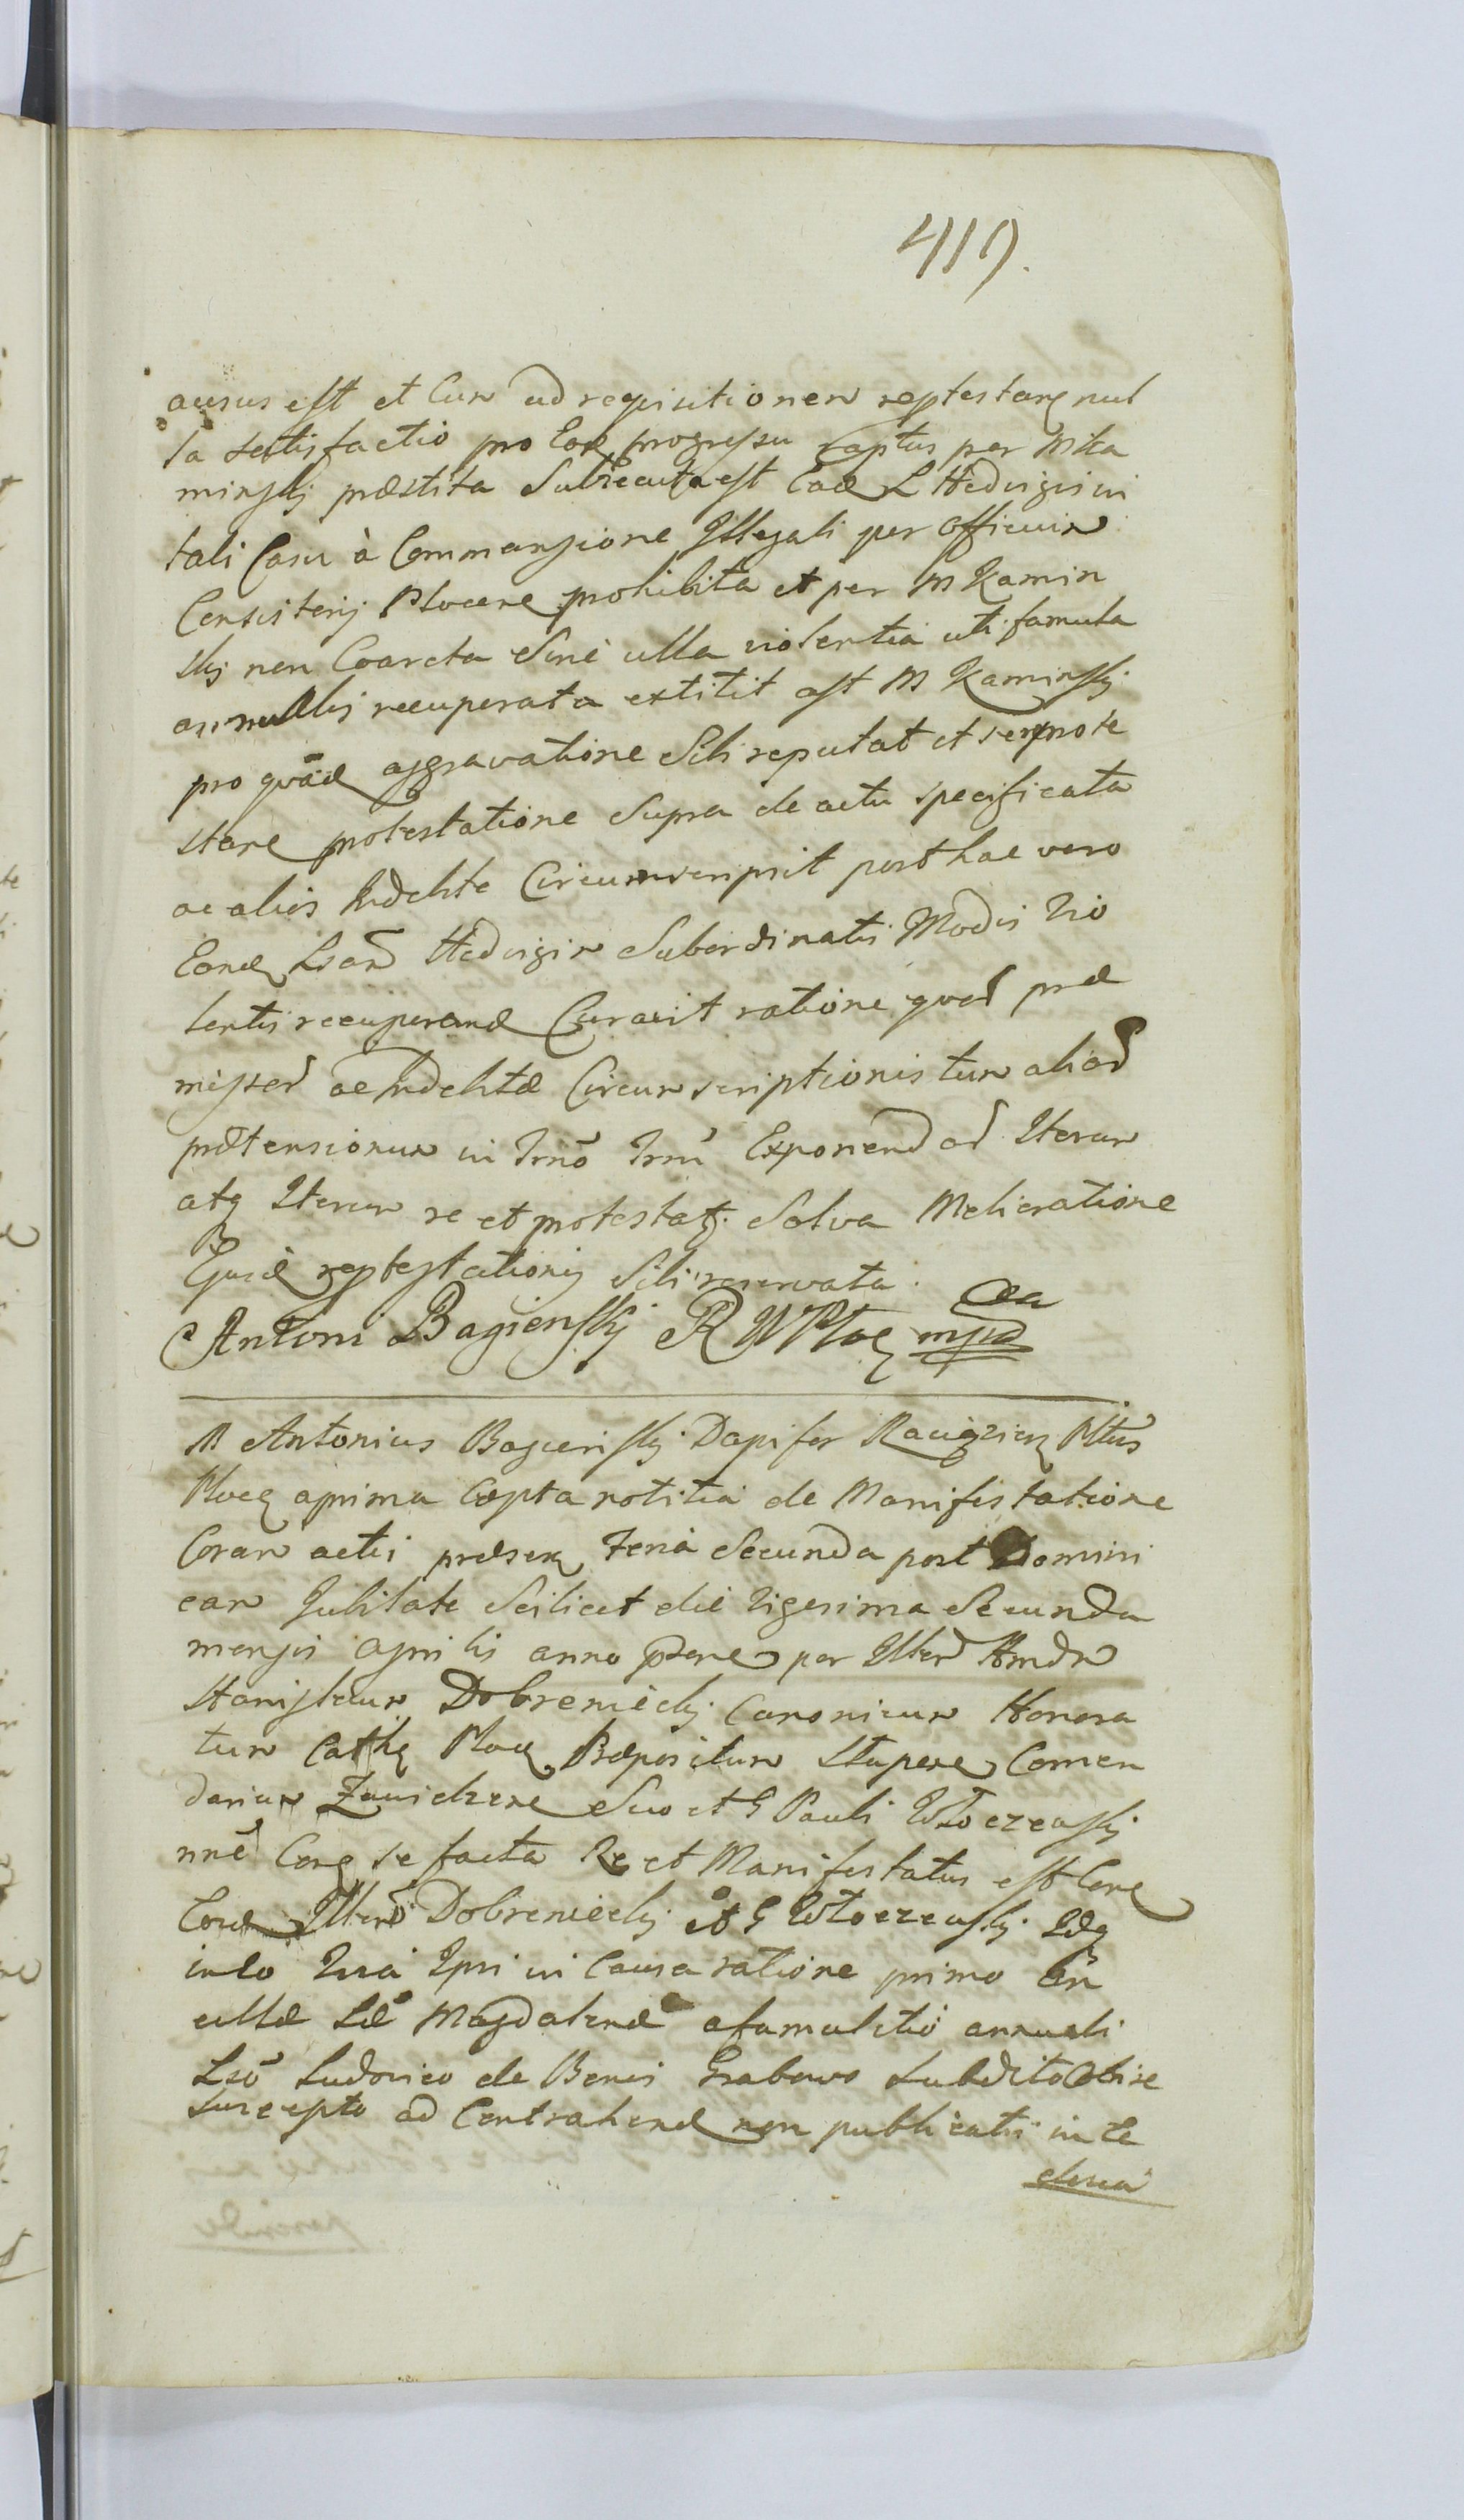 419.
ausus est et Cum ad requisitionem reptestang nul
la satisfactio pro Eoq progressu raptus per M Ka
minskj præstita Subsecuta est Eaq L Hedvigis in
tali Casu à Commansione Illegali per Officium
Consistenj Plocene prohibita et per M Kamin
skj non Coarcta Sine ulla violentia uti famula
annualis recuperata extitit ast M Kaminskj
pro qvad aggravatione Sibi reputat et
stare protestatione Supra de actu specificata
ac alios Indebite Circumscripsit post hac vero
Eand Hedvigim Subordinatis Modis Vio
lentis recuperand Curavit ratione qvod præ
missed ac Indebitæ Circumscriptionis tum aliod
prætensionum in Trno Trni Exponend ad Iterum
atq Iterum se et protestat. Salva Melioratione
Ejusd reptestationis Sibi reservata.
Antoni Bagienskj R W Ploc mpa
M Antonius Bagienskj Dapifer Raciązien Mtus
Ploce aprima Cæpta notitia de Manifestatione
Coram actis præsen Feria Secunda post Domini
cam Jubilate Scilicet die Vigesima Secunda
mensis Aprilis anno psene per Illem Amdm
Stanislaum Dobrenieckj Canonicum Honora
tum Cathe Ploce Præpositum Stupene Comen
darium Zawidzene Suo et G Pauli Włoczewskj
nne Cone se facta Re et Manifestatus est Cone
Eosd Illem Dobrenieckj et G Włoczewskj Idq
inEo Quia Ipsi in Causa ratione primo
cillæ Læ Magdalenæ afamulitio annuali
Lso Ludovico de Bonis Grabowo Subdito
suscepto ad Contrahend non publicatis in Ec
clesia